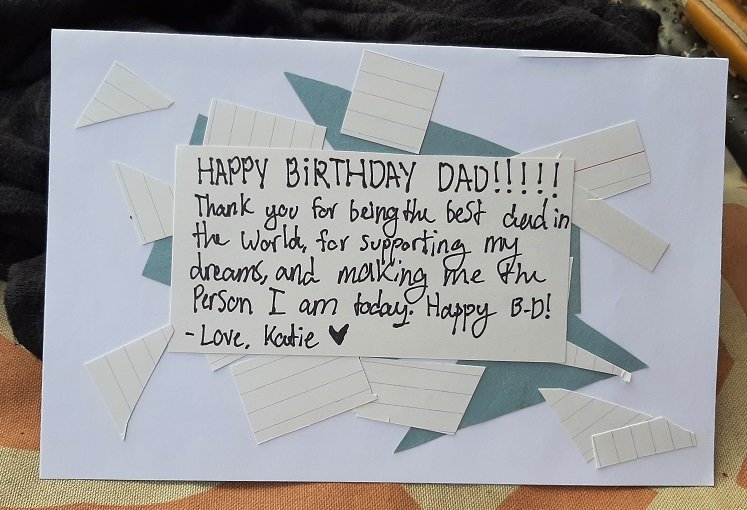 HAPPY BiRTHDAY DAD!!!!!
Thank you for being the best dad in
the world, for supporting my
dreams, and making me the
Person I am today. Happy B-D!
- Love, Katie ♥